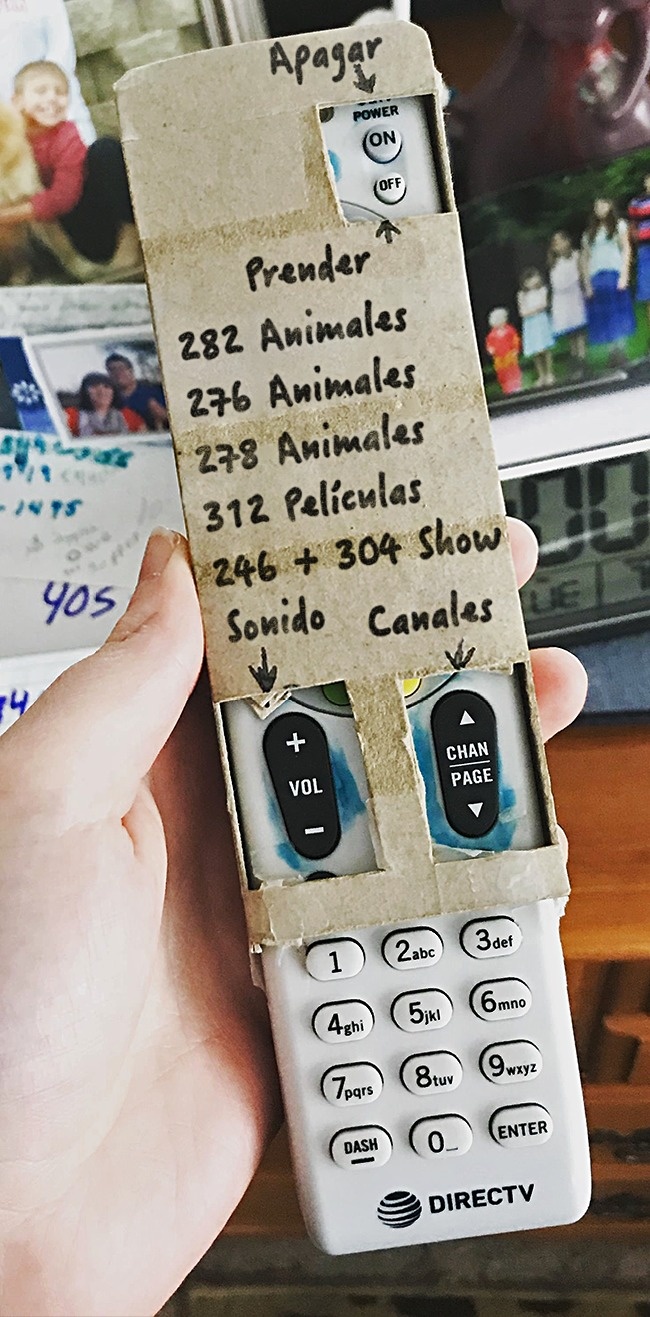 Apagar
POWER
ON
OFF
Prender
282 Animales
276 Animales
278 Animales
312 Películas
246 + 304 Show
Sonido Canales
+
VOL
-
CHAN
PAGE
1 2abc 3def
4ghi 5jkl 6mno
7pqrs 8tuv 9wxyz
DASH 0_ ENTER
DIRECTV
YOS